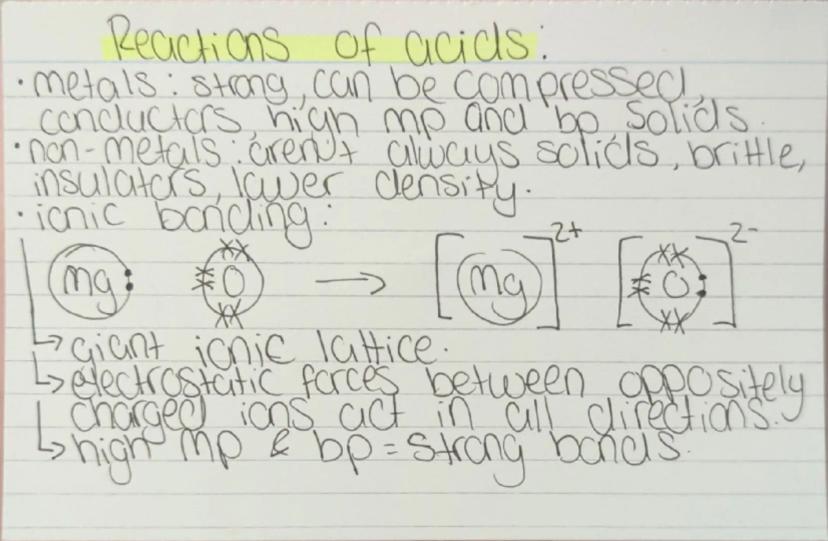 Reactions of acids:
· metals: strong, can be compressed,
conductors, high mp and bp solids.
· non-metals: aren't always solids, brittle,
insulators, lower density.
· ionic bonding:
Mg O → [Mg]2+ [O]2-
↳ giant ionic lattice.
↳ electrostatic forces between oppositely
charged ions act in all directions.
↳ high mp & bp = strong bonds.